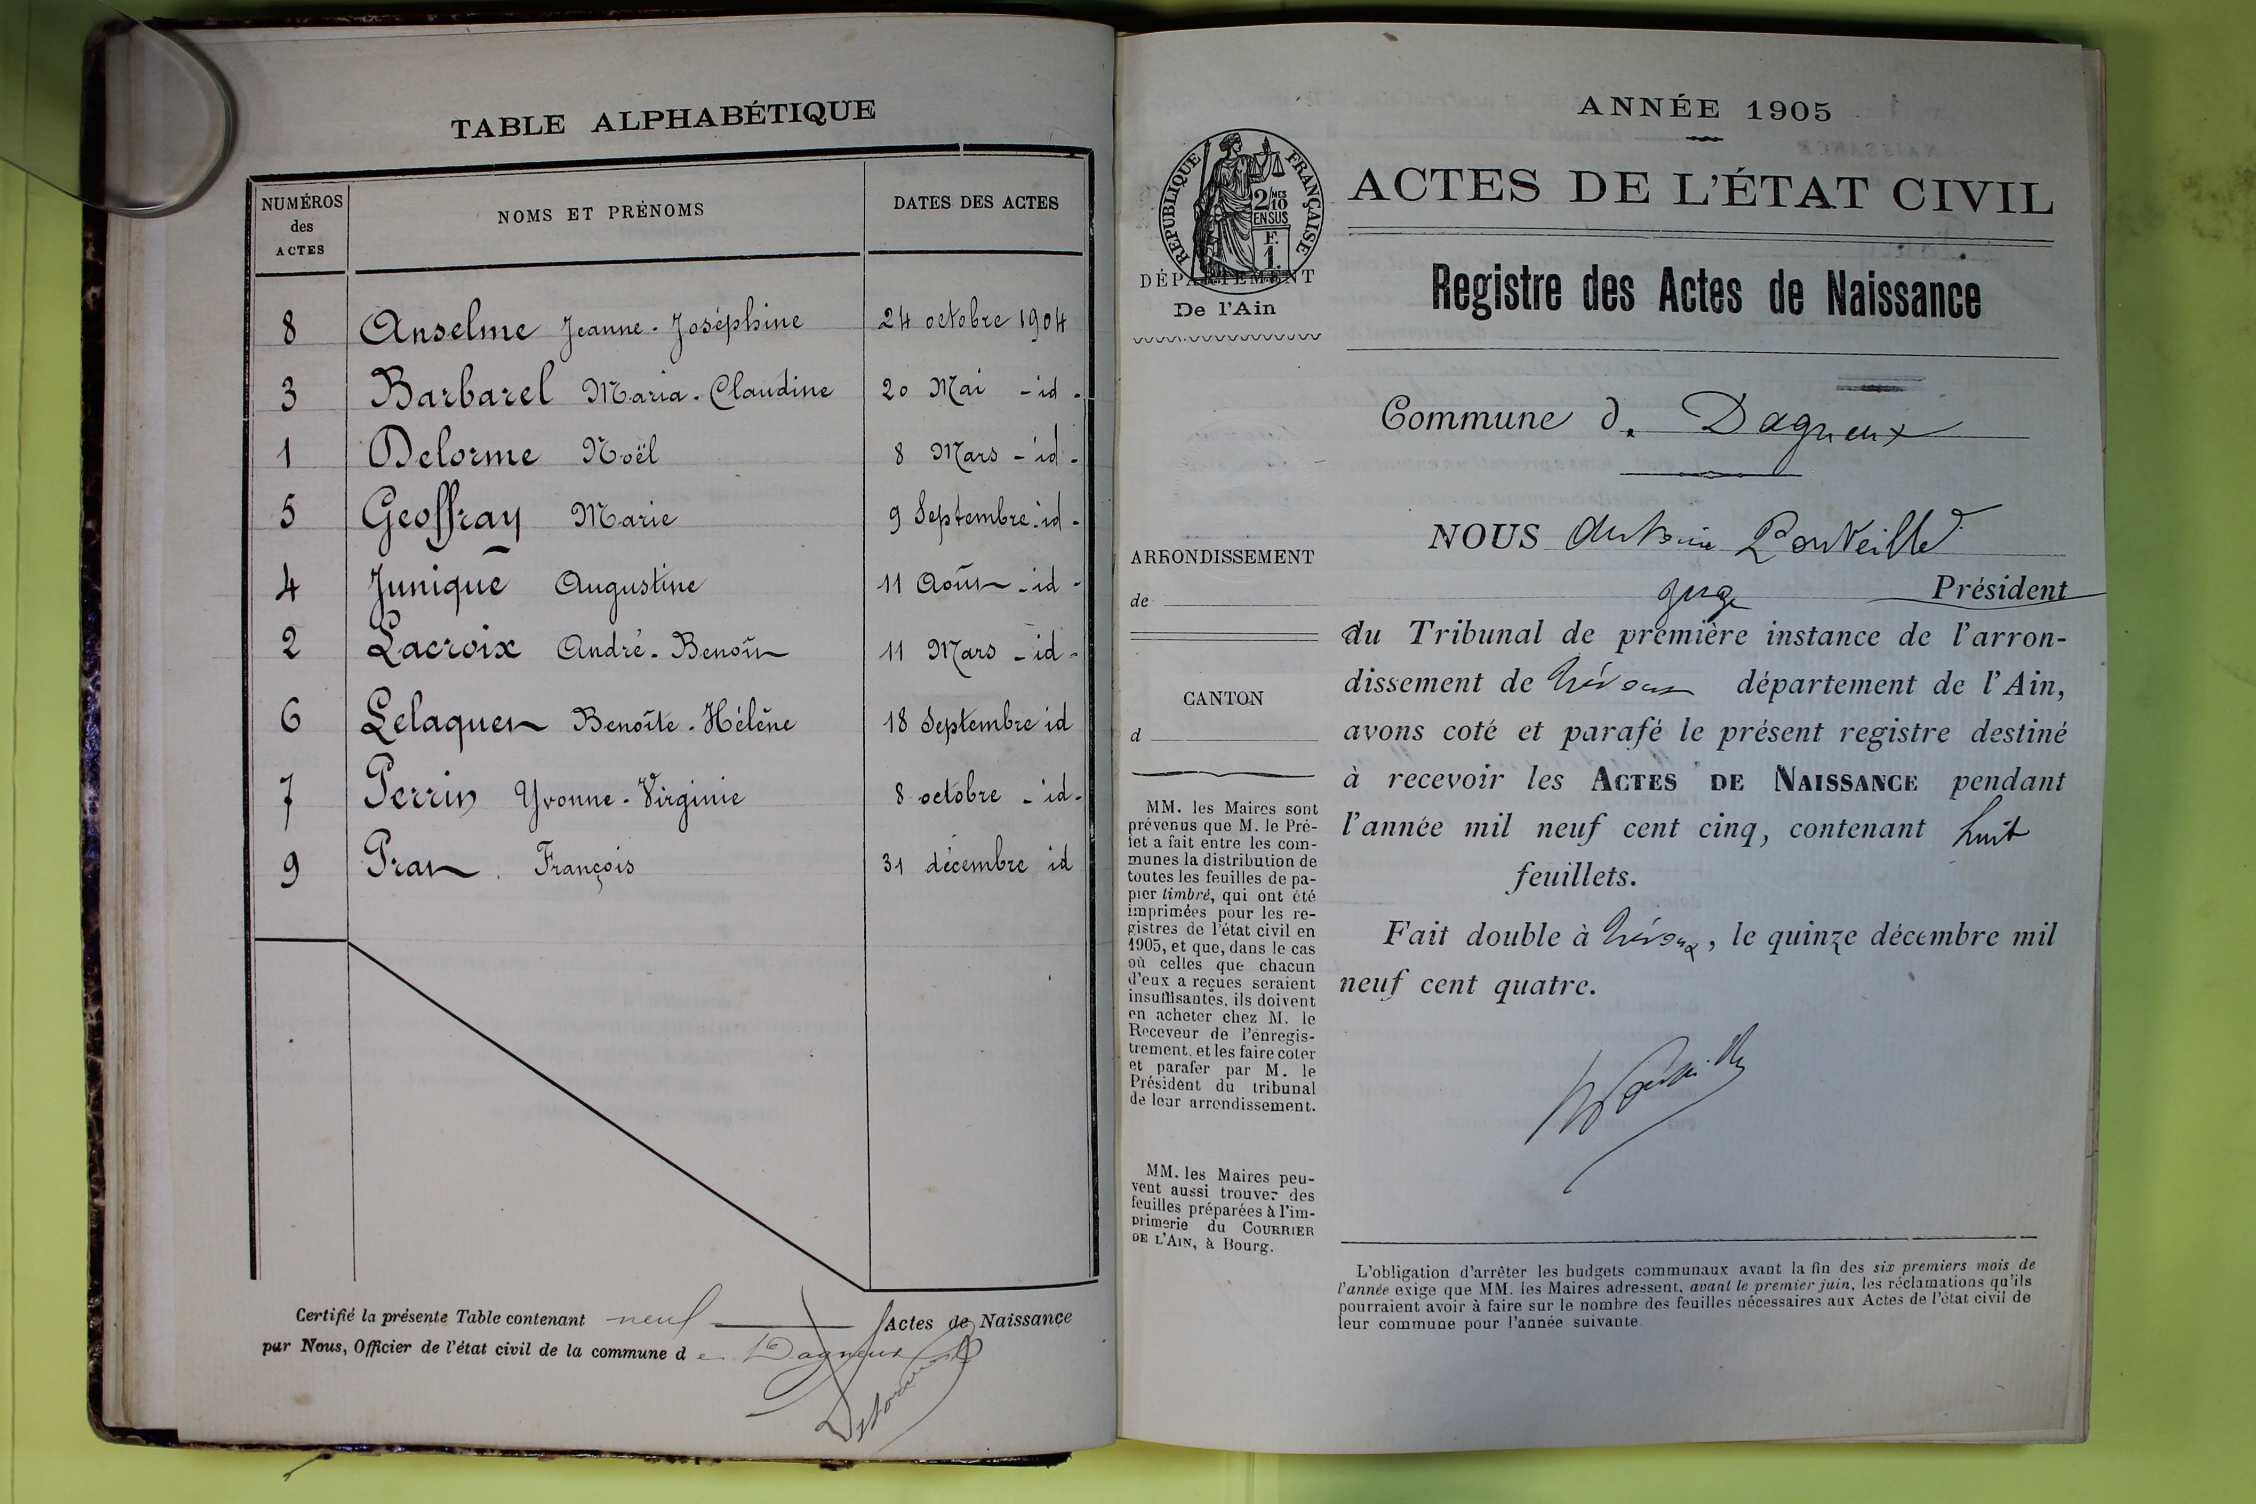 TABLE ALPHABÉTIQUE
NUMÉROS des ACTES
NOMS ET PRÉNOMS
DATES DES ACTES
8 Anselme Jeanne-Joséphine 24 octobre 1904
3 Barbarel Maria-Claudine 20 Mai -id-
1 Delorme Noël 8 Mars -id-
5 Geoffray Marie 9 Septembre-id-
4 Junique Augustine 11 Août -id-
2 Lacroix André-Benoît 11 Mars -id-
6 Lelaquet Benoîte-Hélène 18 Septembre id
7 Perrin Yvonne-Virginie 8 octobre -id-
9 Prat François 31 décembre id
Certifié la présente Table contenant neuf Actes de Naissance
par Nous, Officier de l'état civil de la commune de Dagneux
Delorme
ANNÉE 1905
RÉPUBLIQUE FRANÇAISE
2/10 MES
EN SUS
F.
1.
ACTES DE L'ÉTAT CIVIL
DÉPARTEMENT
De l'Ain
Registre des Actes de Naissance
Commune d. Dagneux
NOUS Antoine
juge Président
du Tribunal de première instance de l'arron-
dissement de Trévoux département de l'Ain,
avons coté et parafé le présent registre destiné
à recevoir les ACTES DE NAISSANCE pendant
l'année mil neuf cent cinq, contenant huit
feuillets.
Fait double à Trévoux, le quinze décembre mil
neuf cent quatre.
ARRONDISSEMENT
de
CANTON
d
MM. les Maires sont
prévenus que M. le Pré-
fet a fait entre les com-
munes la distribution de
toutes les feuilles de pa-
pier timbré, qui ont été
imprimées pour les re-
gistres de l'état civil en
1905, et que, dans le cas
où celles que chacun
d'eux a reçues seraient
insuffisantes, ils doivent
en acheter chez M. le
Receveur de l'enregis-
trement, et les faire coter
et parafer par M. le
Président du tribunal
de leur arrondissement.
MM. les Maires peu-
vent aussi trouver des
feuilles préparées à l'im-
primerie du COURRIER
DE L'AIN, à Bourg.
L'obligation d'arrêter les budgets communaux avant la fin des six premiers mois de
l'année exige que MM. les Maires adressent, avant le premier juin, les réclamations qu'ils
pourraient avoir à faire sur le nombre des feuilles nécessaires aux Actes de l'état civil de
leur commune pour l'année suivante.